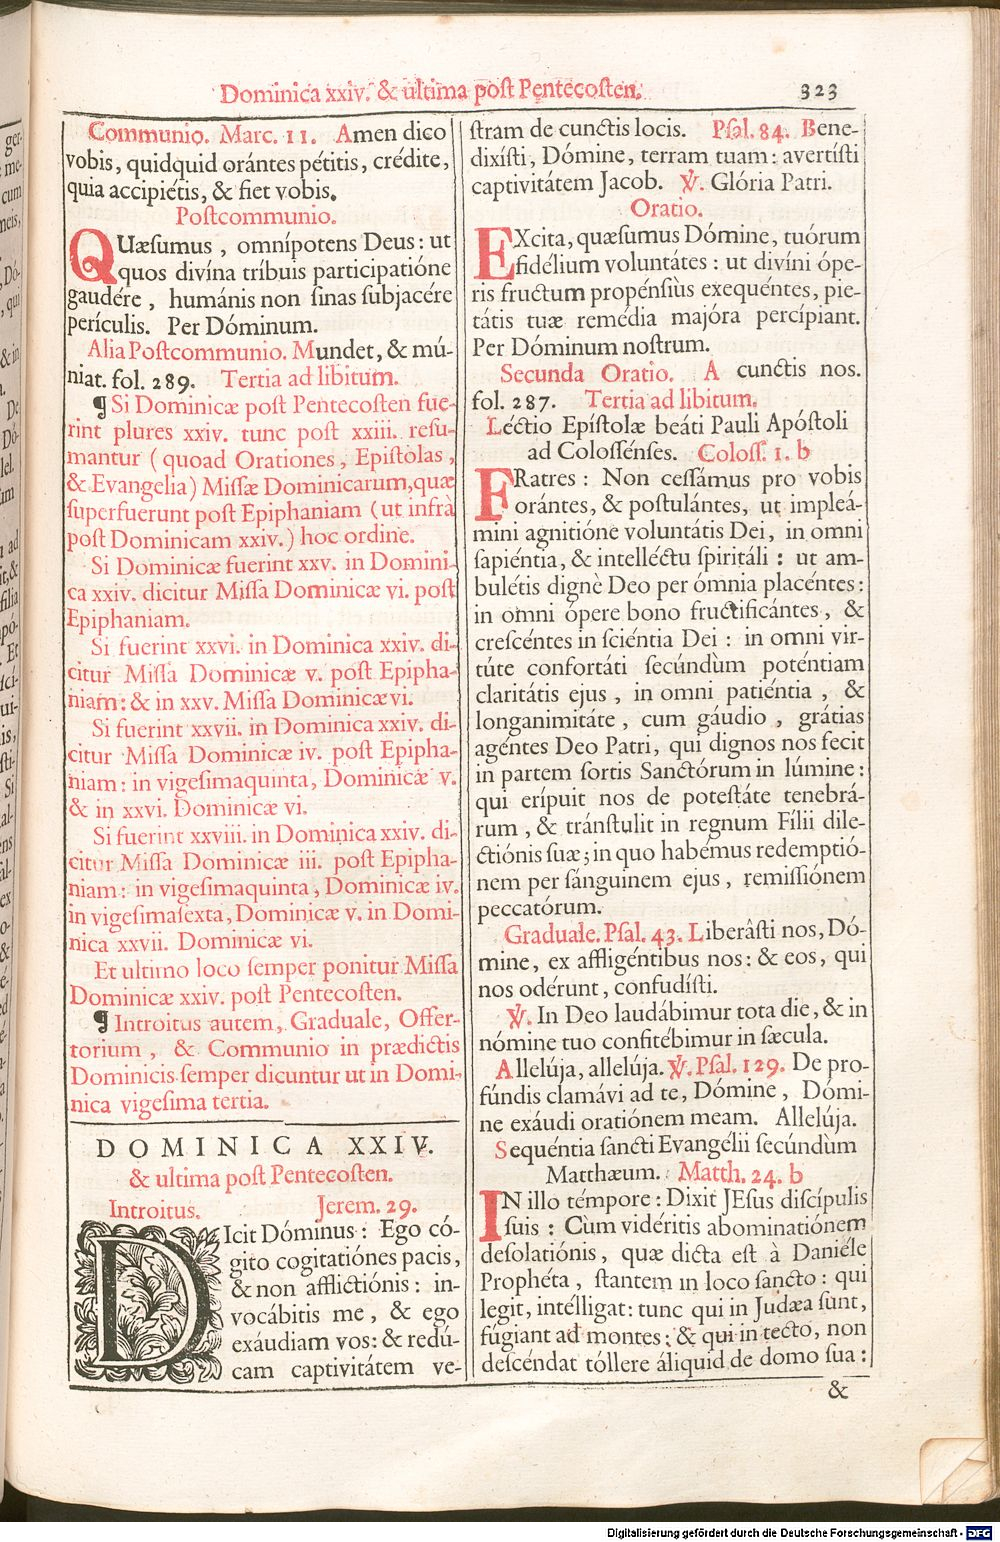 Dominica xxiv. & ultima post Pentecosten. 323
Communio. Marc. 11. Amen dico
vobis, quidquid orántes pétitis, crédite,
quia accipiétis, & fiet vobis.
Postcommunio.
QUæsumus, omnípotens Deus: ut
quos divína tríbuis participatióne
gaudére, humánis non sinas subjacére
perículis. Per Dóminum.
Alia Postcommunio. Mundet, & mú-
niat. fol. 289. Tertia ad libitum.
¶ Si Dominicæ post Pentecosten fue-
rint plures xxiv. tunc post xxiii. resu-
mantur (quoad Orationes, Epistolas,
& Evangelia) Missæ Dominicarum, quæ
superfuerunt post Epiphaniam (ut infrà
post Dominicam xxiv.) hoc ordine.
Si Dominicæ fuerint xxv. in Domini-
ca xxiv. dicitur Missa Dominicæ vi. post
Epiphaniam.
Si fuerint xxvi. in Dominica xxiv. di-
citur Missa Dominicæ v. post Epipha-
niam: & in xxv. Missa Dominicæ vi.
Si fuerint xxvii. in Dominica xxiv. di-
citur Missa Dominicæ iv. post Epipha-
niam: in vigesimaquinta, Dominicæ v.
& in xxvi. Dominicæ vi.
Si fuerint xxviii. in Dominica xxiv. di-
citur Missa Dominicæ iii. post Epipha-
niam: in vigesimaquinta, Dominicæ iv.
in vigesimasexta, Dominicæ v. in Domi-
nica xxvii. Dominicæ vi.
Et ultimo loco semper ponitur Missa
Dominicæ xxiv. post Pentecosten.
¶ Introitus autem, Graduale, Offer-
torium, & Communio in prædictis
Dominicis semper dicuntur ut in Domi-
nica vigesima tertia.
DOMINICA XXIV.
& ultima post Pentecosten.
Introitus. Jerem. 29.
DIcit Dóminus: Ego có-
gito cogitatiónes pacis,
& non afflictiónis: in-
vocábitis me, & ego
exáudiam vos: & redú-
cam captivitátem ve-
stram de cunctis locis. Psal. 84. Bene-
dixísti, Dómine, terram tuam: avertísti
captivitátem Jacob. ℣. Glória Patri.
Oratio.
EXcita, quæsumus Dómine, tuórum
fidélium voluntátes: ut divíni ópe-
ris fructum propénsiùs exequéntes, pie-
tátis tuæ remédia majóra percípiant.
Per Dóminum nostrum.
Secunda Oratio. A cunctis nos.
fol. 287. Tertia ad libitum.
Léctio Epístolæ beáti Pauli Apóstoli
ad Colossénses. Coloss. 1. b
FRatres: Non cessámus pro vobis
orántes, & postulántes, ut impleá-
mini agnitióne voluntátis Dei, in omni
sapiéntia, & intelléctu spiritáli: ut am-
bulétis dignè Deo per ómnia placéntes:
in omni ópere bono fructificántes, &
crescéntes in sciéntia Dei: in omni vir-
túte confortáti secúndùm poténtiam
claritátis ejus, in omni patiéntia, &
longanimitáte, cum gáudio, grátias
agéntes Deo Patri, qui dignos nos fecit
in partem sortis Sanctórum in lúmine:
qui erípuit nos de potestáte tenebrá-
rum, & tránstulit in regnum Fílii dile-
ctiónis suæ; in quo habémus redemptió-
nem per sánguinem ejus, remissiónem
peccatórum.
Graduale. Psal. 43. Liberâsti nos, Dó-
mine, ex affligéntibus nos: & eos, qui
nos odérunt, confudísti.
℣. In Deo laudábimur tota die, & in
nómine tuo confitébimur in sæcula.
Allelúja, allelúja. ℣. Psal. 129. De pro-
fúndis clamávi ad te, Dómine, Dómi-
ne exáudi oratiónem meam. Allelúja.
Sequéntia sancti Evangélii secúndùm
Matthæum. Matth. 24. b
IN illo témpore: Dixit JEsus discípulis
suis: Cùm vidéritis abominatiónem
desolatiónis, quæ dicta est à Daniéle
Prophéta, stantem in loco sancto: qui
legit, intélligat: tunc qui in Judæa sunt,
fúgiant ad montes: & qui in tecto, non
descéndat tóllere áliquid de domo sua:
&
Digitalisierung gefördert durch die Deutsche Forschungsgemeinschaft - DFG